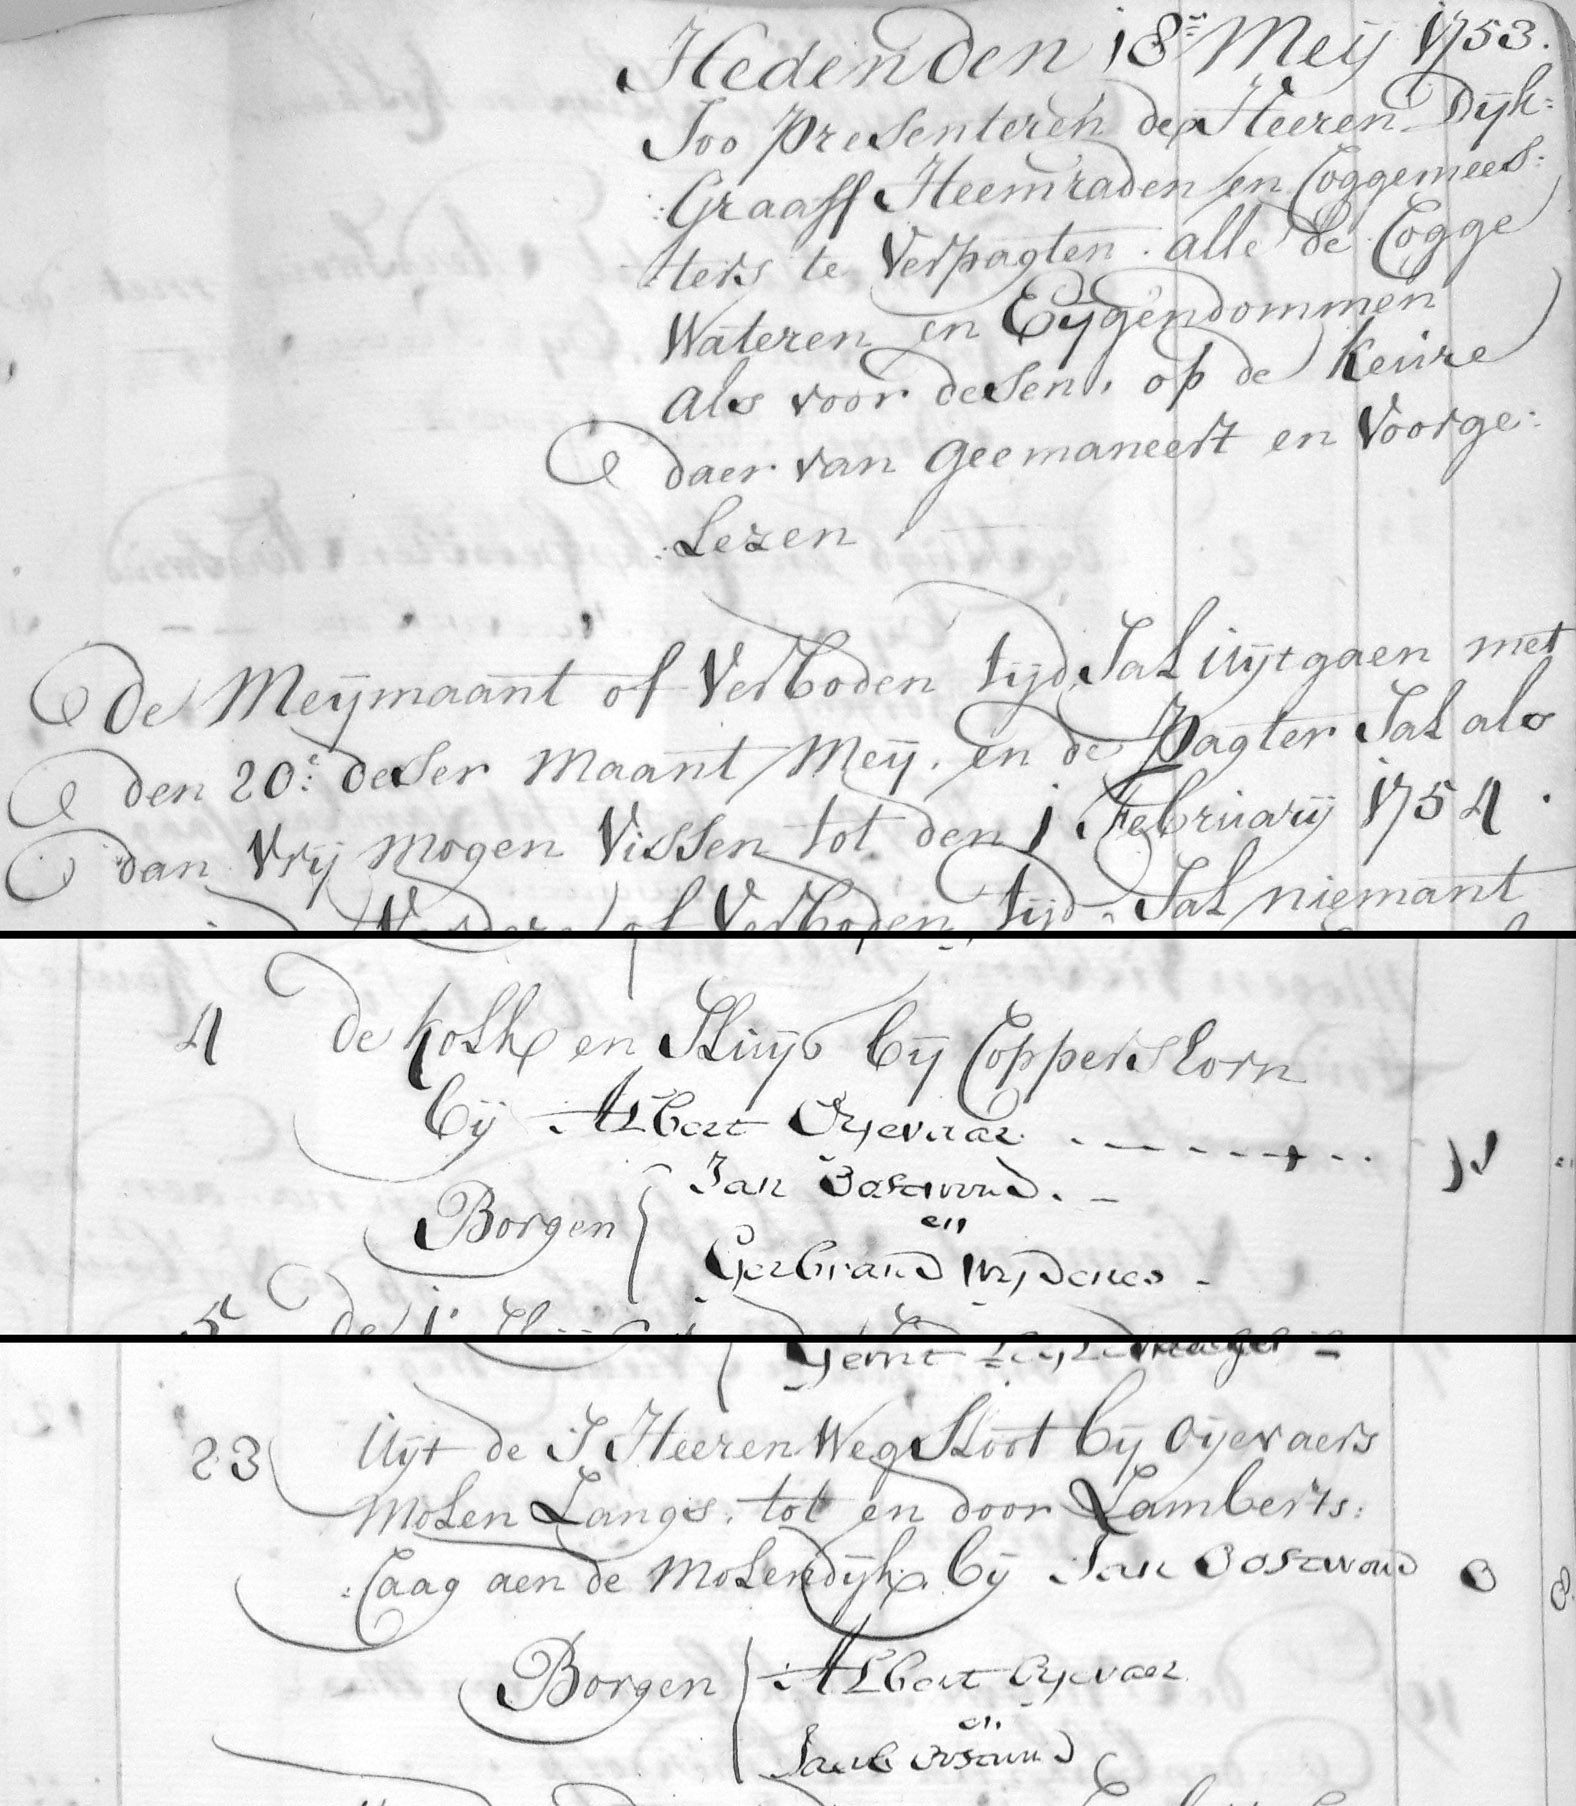 Heden den 18e Meij 1753.
Soo presenteren de Heeren Dijk=
:Graaff Heemraden en Coggemees:
:ters te Verpagten. alle de Cogge
Wateren en Eijgendommen
als voor desen, op de keure
daer van geemaneert en Voorge:
:Lezen
De Meijmaant of Verboden tijd Sal uijtgaen met
den 20e: deser maant Meij, en de Pagter Sal als
dan Vrij mogen Vissen tot den 1 February 1754.
of Verboden tijd Sal niemant
4 De kolk en Sluijs bij Coppershorn
bij Albert Oyevaar
Jan Oostwoud. -
Borgen en
Gerbrand Wydenes -
5 de
Gerrit
23 Uijt de S Heeren Weg Sloot bij Oijevaers
molen Langs, tot en door Lamberts:
:Caag aen de molendijk, bij Jan Oostwoud 3 8
Borgen Albert Oyevaer
en
Jacob Oostwoud